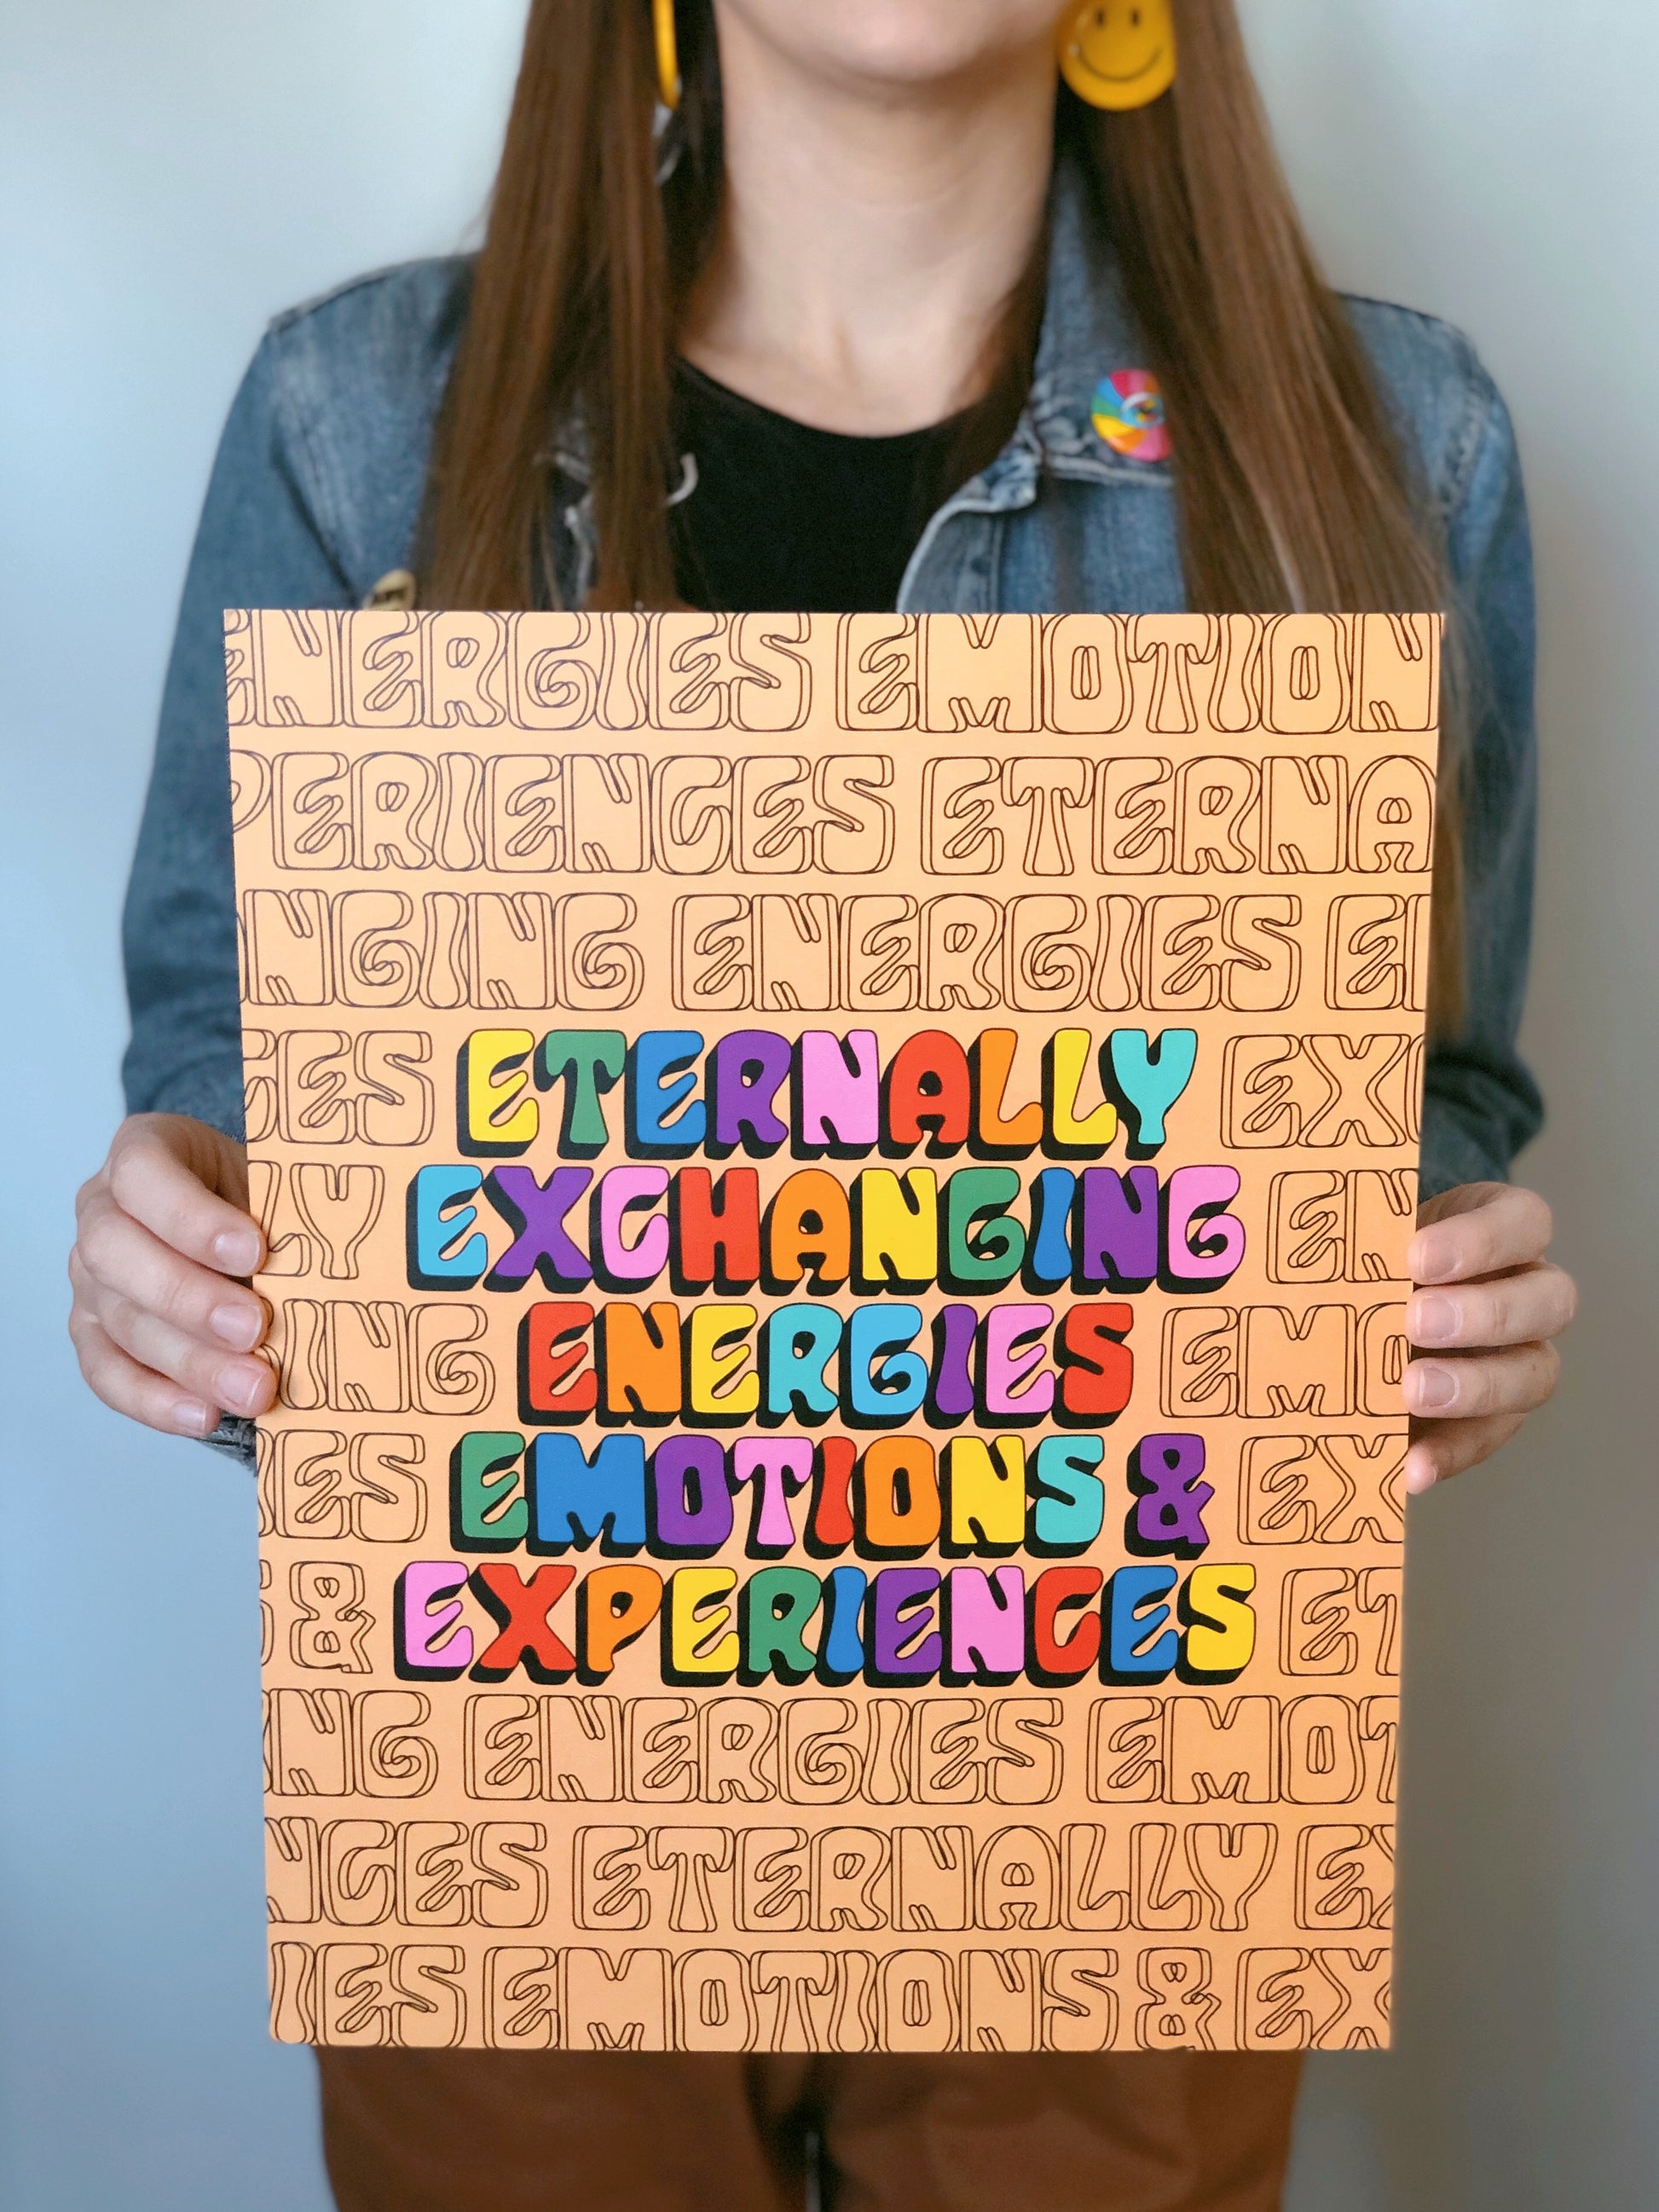 ENERGIES EMOTION
PERIENCES ETERNA
NGING ENERGIES E
CES ETERNALLY EXC
LY EXCHANGING EN
ING ENERGIES EMO
IES EMOTIONS & EX
& EXPERIENCES ET
NG ENERGIES EMOT
NCES ETERNALLY EX
IES EMOTIONS & EX